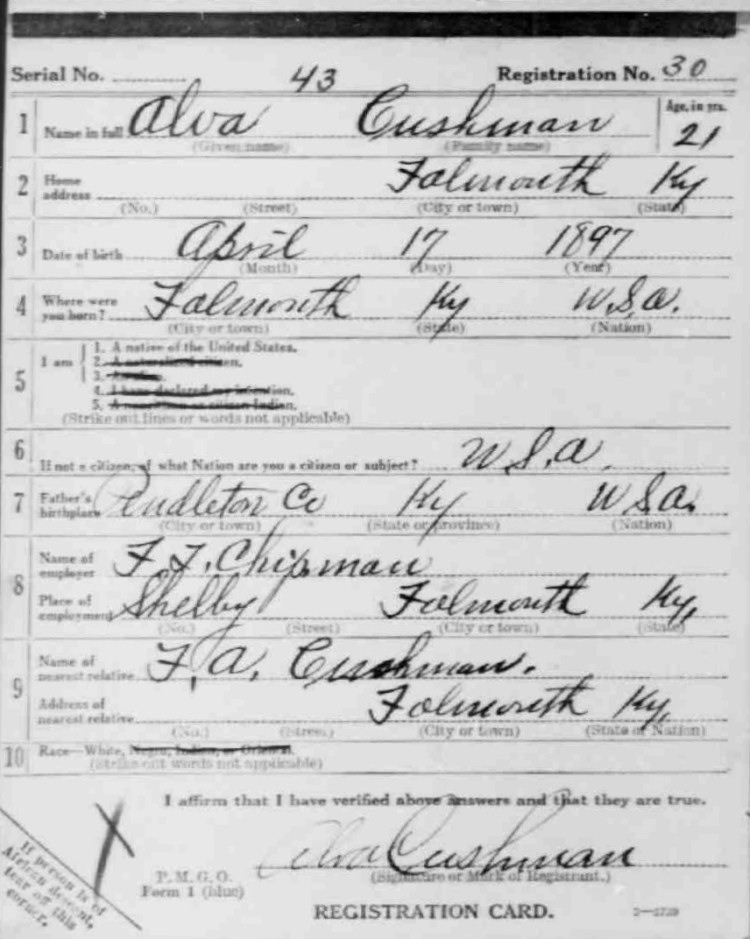 Serial No. 43 Registration No. 30
1 Name in full Alva Cushman Age, in yrs. 21
(Given name) (Family name)
2 Home address Falmouth Ky
(No.) (Street) (City or town) (State)
3 Date of birth April 17 1897
(Month) (Day) (Year)
4 Where were you born? Falmouth Ky U.S.A.
(City or town) (State) (Nation)
5 I am
1. A native of the United States.
2. A naturalized citizen.
3. An alien.
4. I have declared my intention.
5. A noncitizen or citizen Indian.
(Strike out lines or words not applicable)
6 If not a citizen, of what Nation are you a citizen or subject? U.S.A.
7 Father's birthplace Pendleton Co Ky U S A.
(City or town) (State or province) (Nation)
8 Name of employer F. F. Chipman
Place of employment Shelby Falmouth Ky,
(No.) (Street) (City or town) (State)
9 Name of nearest relative F. A. Cushman.
Address of nearest relative Falmouth Ky,
(No.) (Street) (City or town) (State or Nation)
10 Race—White, Negro, Indian, or Oriental.
(Strike out words not applicable)
I affirm that I have verified above answers and that they are true.
X
Alva Cushman
P. M. G. O.
Form 1 (blue)
(Signature or Mark of Registrant.)
If person is of
African descent,
tear off this
corner.
REGISTRATION CARD.